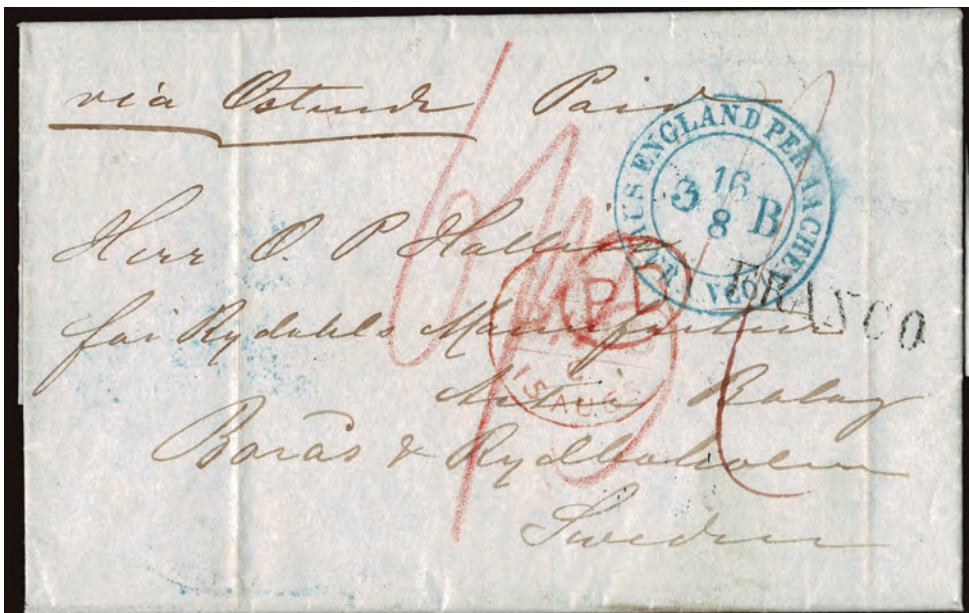 via Ostende Paid
AUS ENGLAND PER AACHEN
FRANCO
16
3 B
8
FRANCO
PD
Herr O. P. Hallin
för Rydahls Manufactur
15 AUG
Bolag
Borås & Rydboholm
Sweden